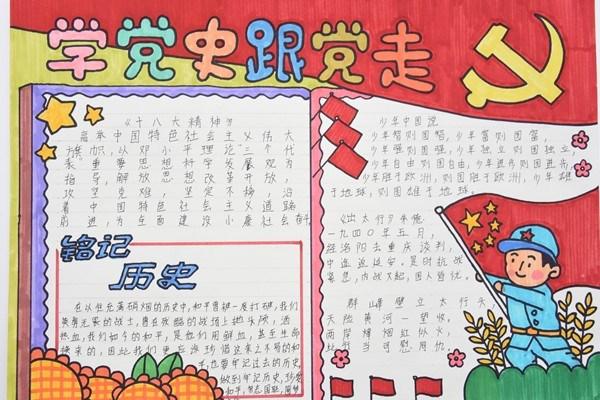 学党史跟党走
《十八大精神》
高举中国特色社会主义伟大
旗帜，以邓小平理论"三个代
表重要思想科学发展观为
指导，解放思想改革开放，
攻坚克难，坚定不移，沿
着中国特色社会主义道路
前进，为全面建设小康社会奋斗
铭记
历史
在以往充满硝烟的历史中，和平曾被一度打碎，我们
英勇无畏的战士，曾在残酷的战场上抛头颅，洒
热血，我们如今的和平，是他们用鲜血，甚至生命
换来的，因此我们更应珍惜这来之不易的和
平，也要牢记过去的历史，
做到牢记历史，珍爱
和平，
少年中国说
少年智则国智，少年富则国富，
少年强则国强，少年独立则国独立，
少年自由则国自由，少年进步则国进步，
少年胜于欧洲，则国胜于欧洲，少年雄
于地球，则国雄于地球。
《出太行》朱德
一九四〇年五月，
经洛阳去重庆谈判，
中途返延安。是时抗战
紧急，内战又起，国人皆忧。
群峰壁立太行头，
天险黄河一望收。
两岸烽烟红似火，
此行当可慰同仇。